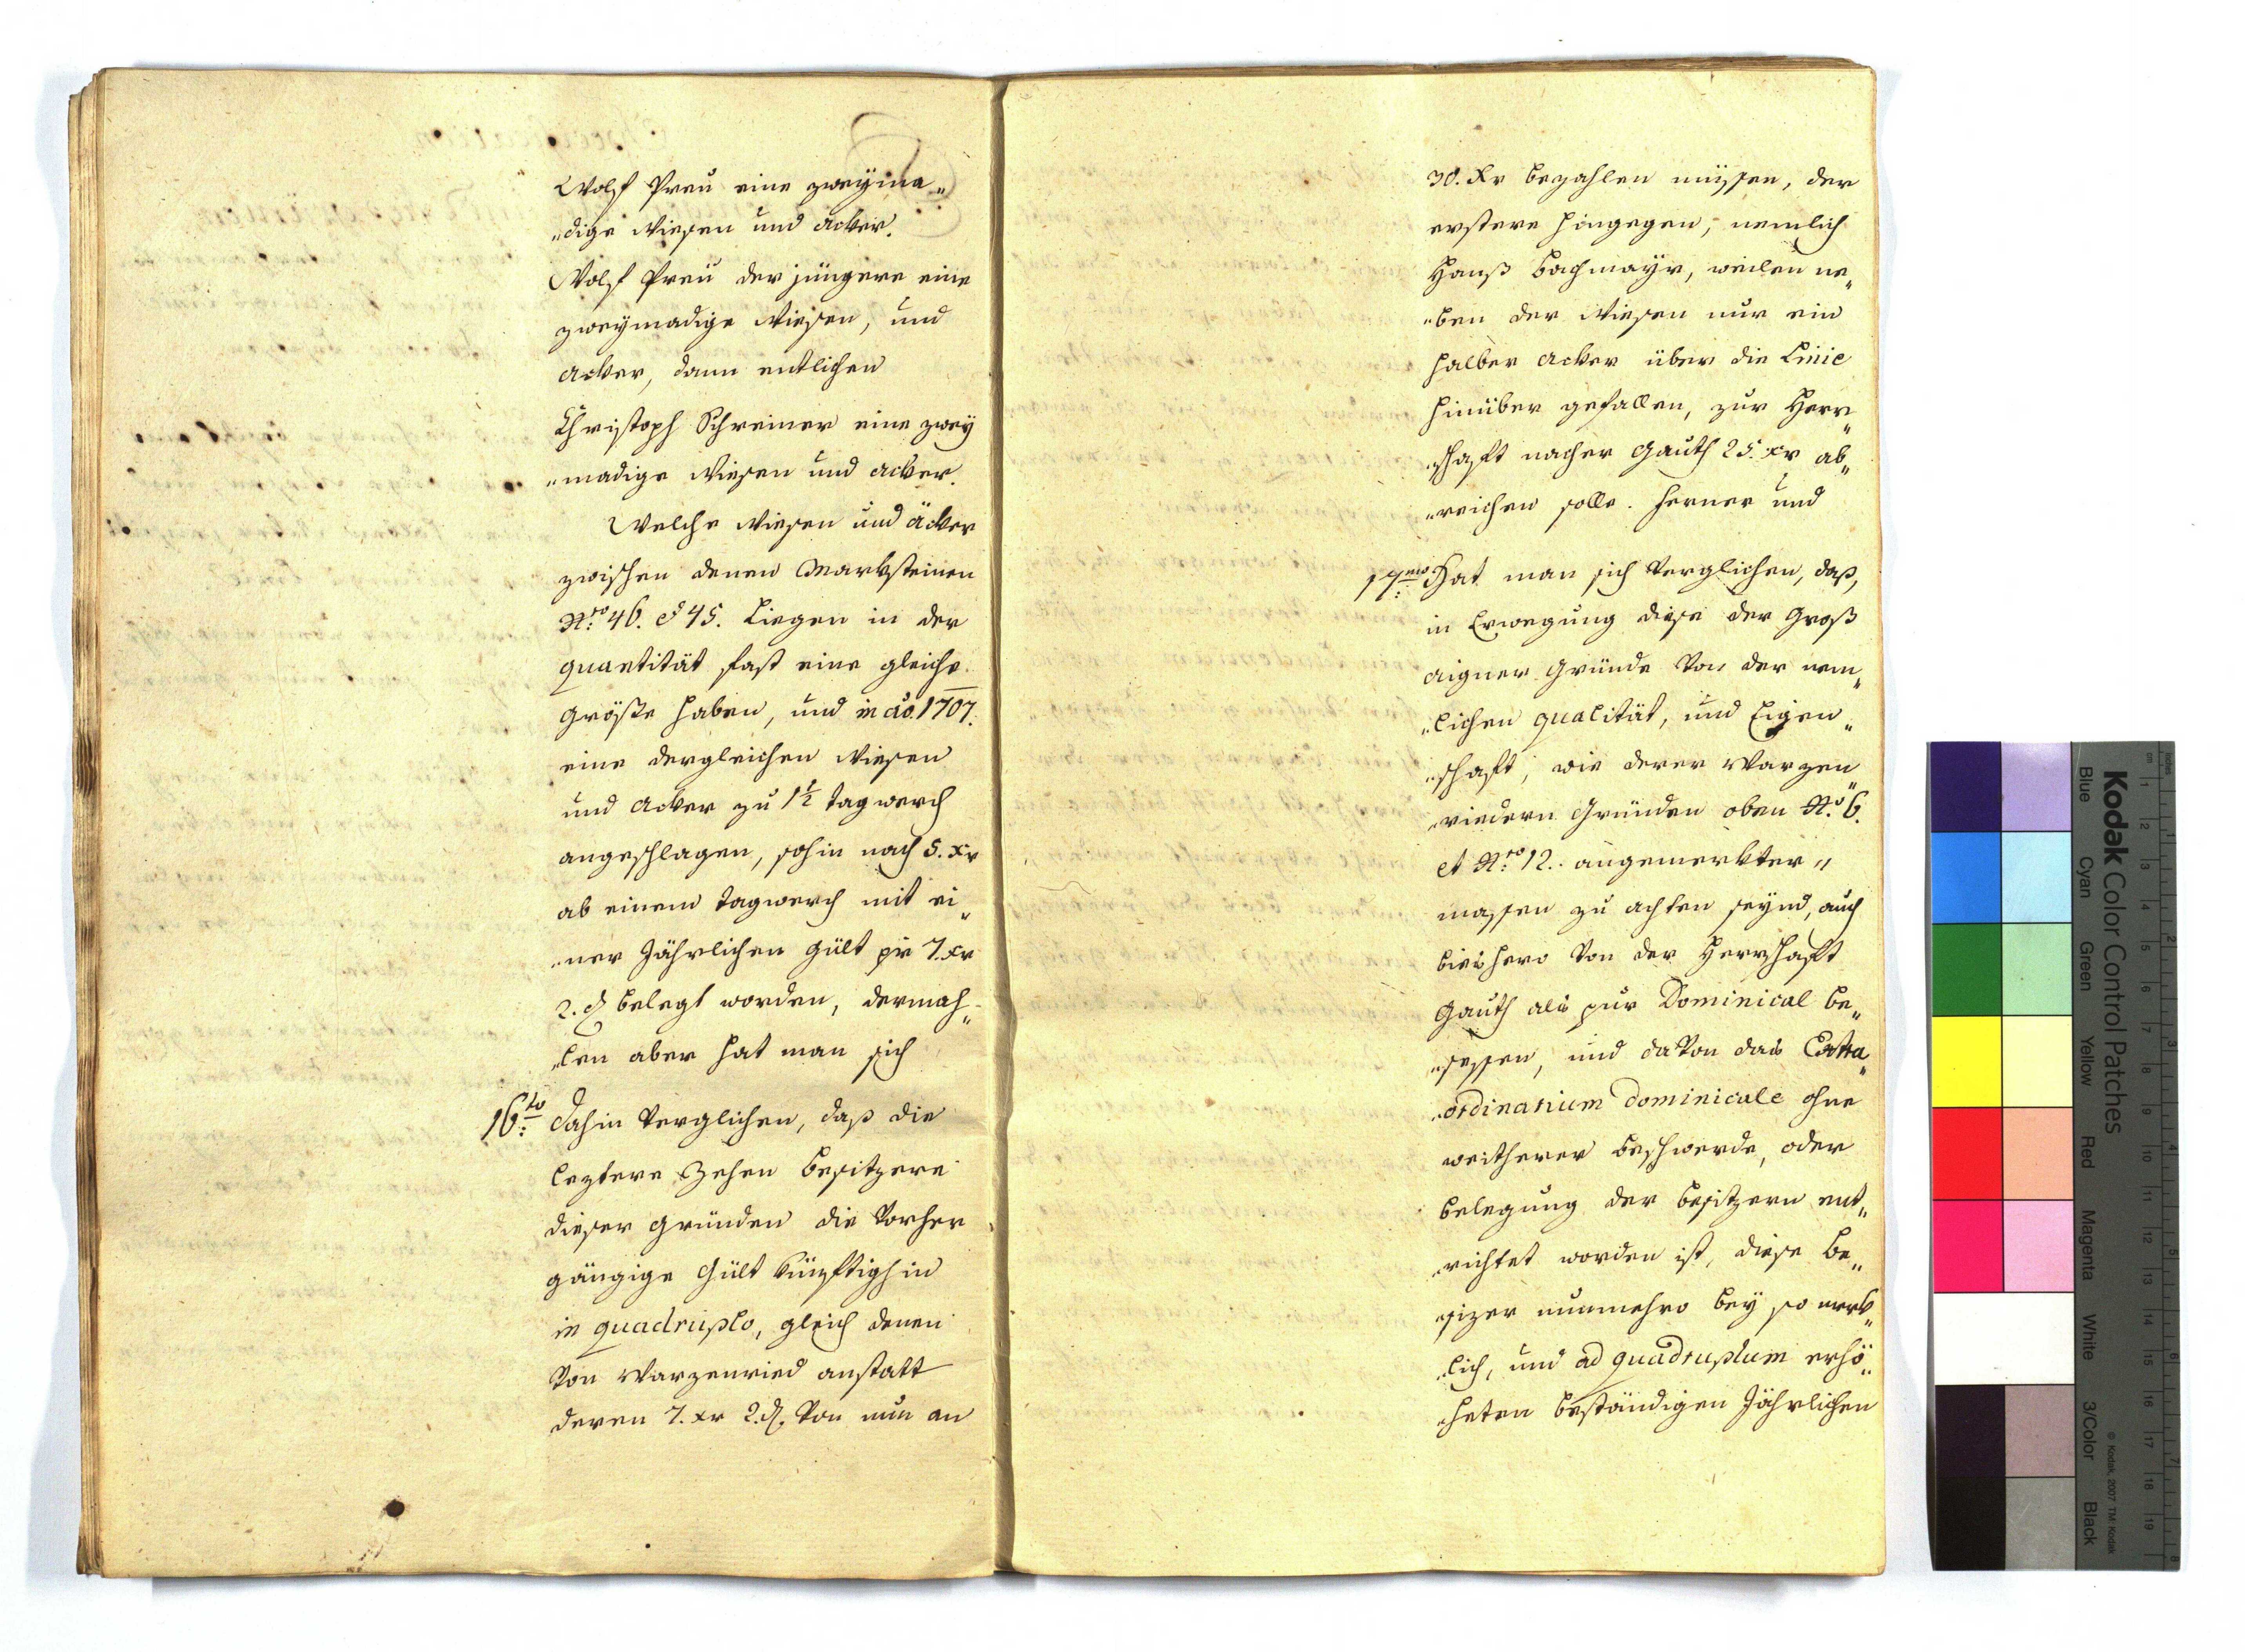 Wolf Preü eine zweyma„
„dige Wiesen und acker.
Wolf Preü der jüngere eine
zweymadige Wiesen, und
acker, dann entlichen
Christoph Schreiner eine zwey
„madige Wiesen und acker.
Welche Wiesen und äcker
zwischen denen Marksteinen
Nro: 46. & 45. Liegen in der
quantität fast eine gleiche
größe haben, und in ao. 1707.
eine dergleichen Wiesen
und acker zu 1½ tagwerch
angeschlagen, sohin nach 5. xr
ab einem tagwerch mit ei„
„ner Jährlichen gült pr 7. xr
2. d belegt worden, dermah„
„len aber hat man sich
16to: dahin verglichen, daß die
leztere zehen besitzere
dieser gründen die vorher
gängige gült künftighin
in quadruplo, gleich denen
von Warzenried anstatt
deren 7. xr 2. d. von nun an
30. xr bezahlen müssen, der
erstere hingegen, nemlich
Hanß Bachmayr, weilen ne„
„ben der Wiesen nur ein
halber acker über die Linie
hinüber gefallen, zur Herr„
„schaft nacher Gauth 25. xr ab„
„reichen solle. ferner und
17mo: Hat man sich verglichen, daß,
in Erwegung diese der Groß
aigner gründe von der nem„
„lichen qualität, und Eigen„
„schaft, wie derer Warzen„
„riedern Gründen oben No. 6.
et Nro: 12. angemerkter„
massen zu achten seynd, auch
bishero von der Herrschaft
Gauth als pur Dominical be„
„sessen, und davon das Extra„
„ordinarium dominicale ohne
weitherer beschwerde, oder
belegung der besitzern ent„
„richtet worden ist, diese be„
sizer nunmehro bey so merk„
„lich, und ad quadruplum erhö„
„heten beständigen Jährlichen
Kodak Color Control Patches
Blue Cyan Green Yellow Red Magenta White 3/Color Black
© Kodak, 2007 TM: Kodak